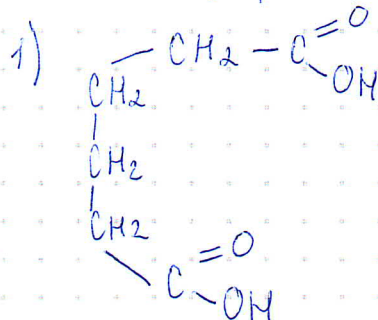 1) CH2 – CH2 – C =O
OH
CH2
CH2
C =O
OH